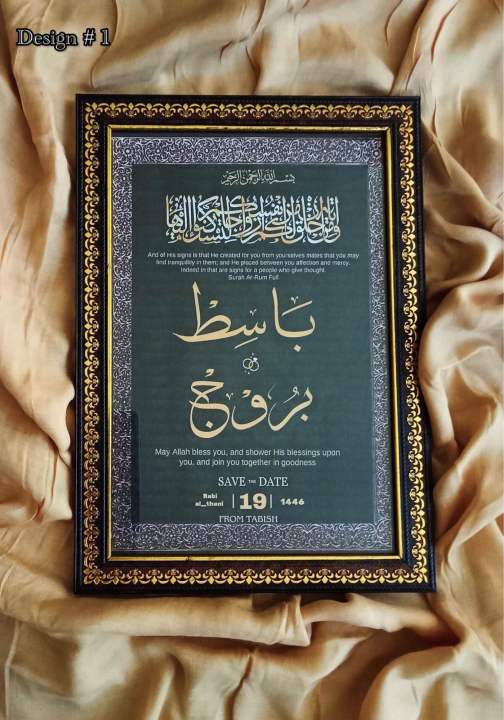 Design # 1
بسم الله الرحمن الرحيم
ومن آياته أن خلق لكم من أنفسكم أزواجا لتسكنوا إليها
And of His signs is that He created for you from yourselves mates that you may
find tranquility in them; and He placed between you affection and mercy.
Indeed in that are signs for a people who give thought.
Surah Ar-Rum Full
بَاسِطْ
بُرُوجْ
May Allah bless you, and shower His blessings upon
you, and join you together in goodness
SAVE THE DATE
Rabi al_thani | 19 | 1446
FROM TABISH